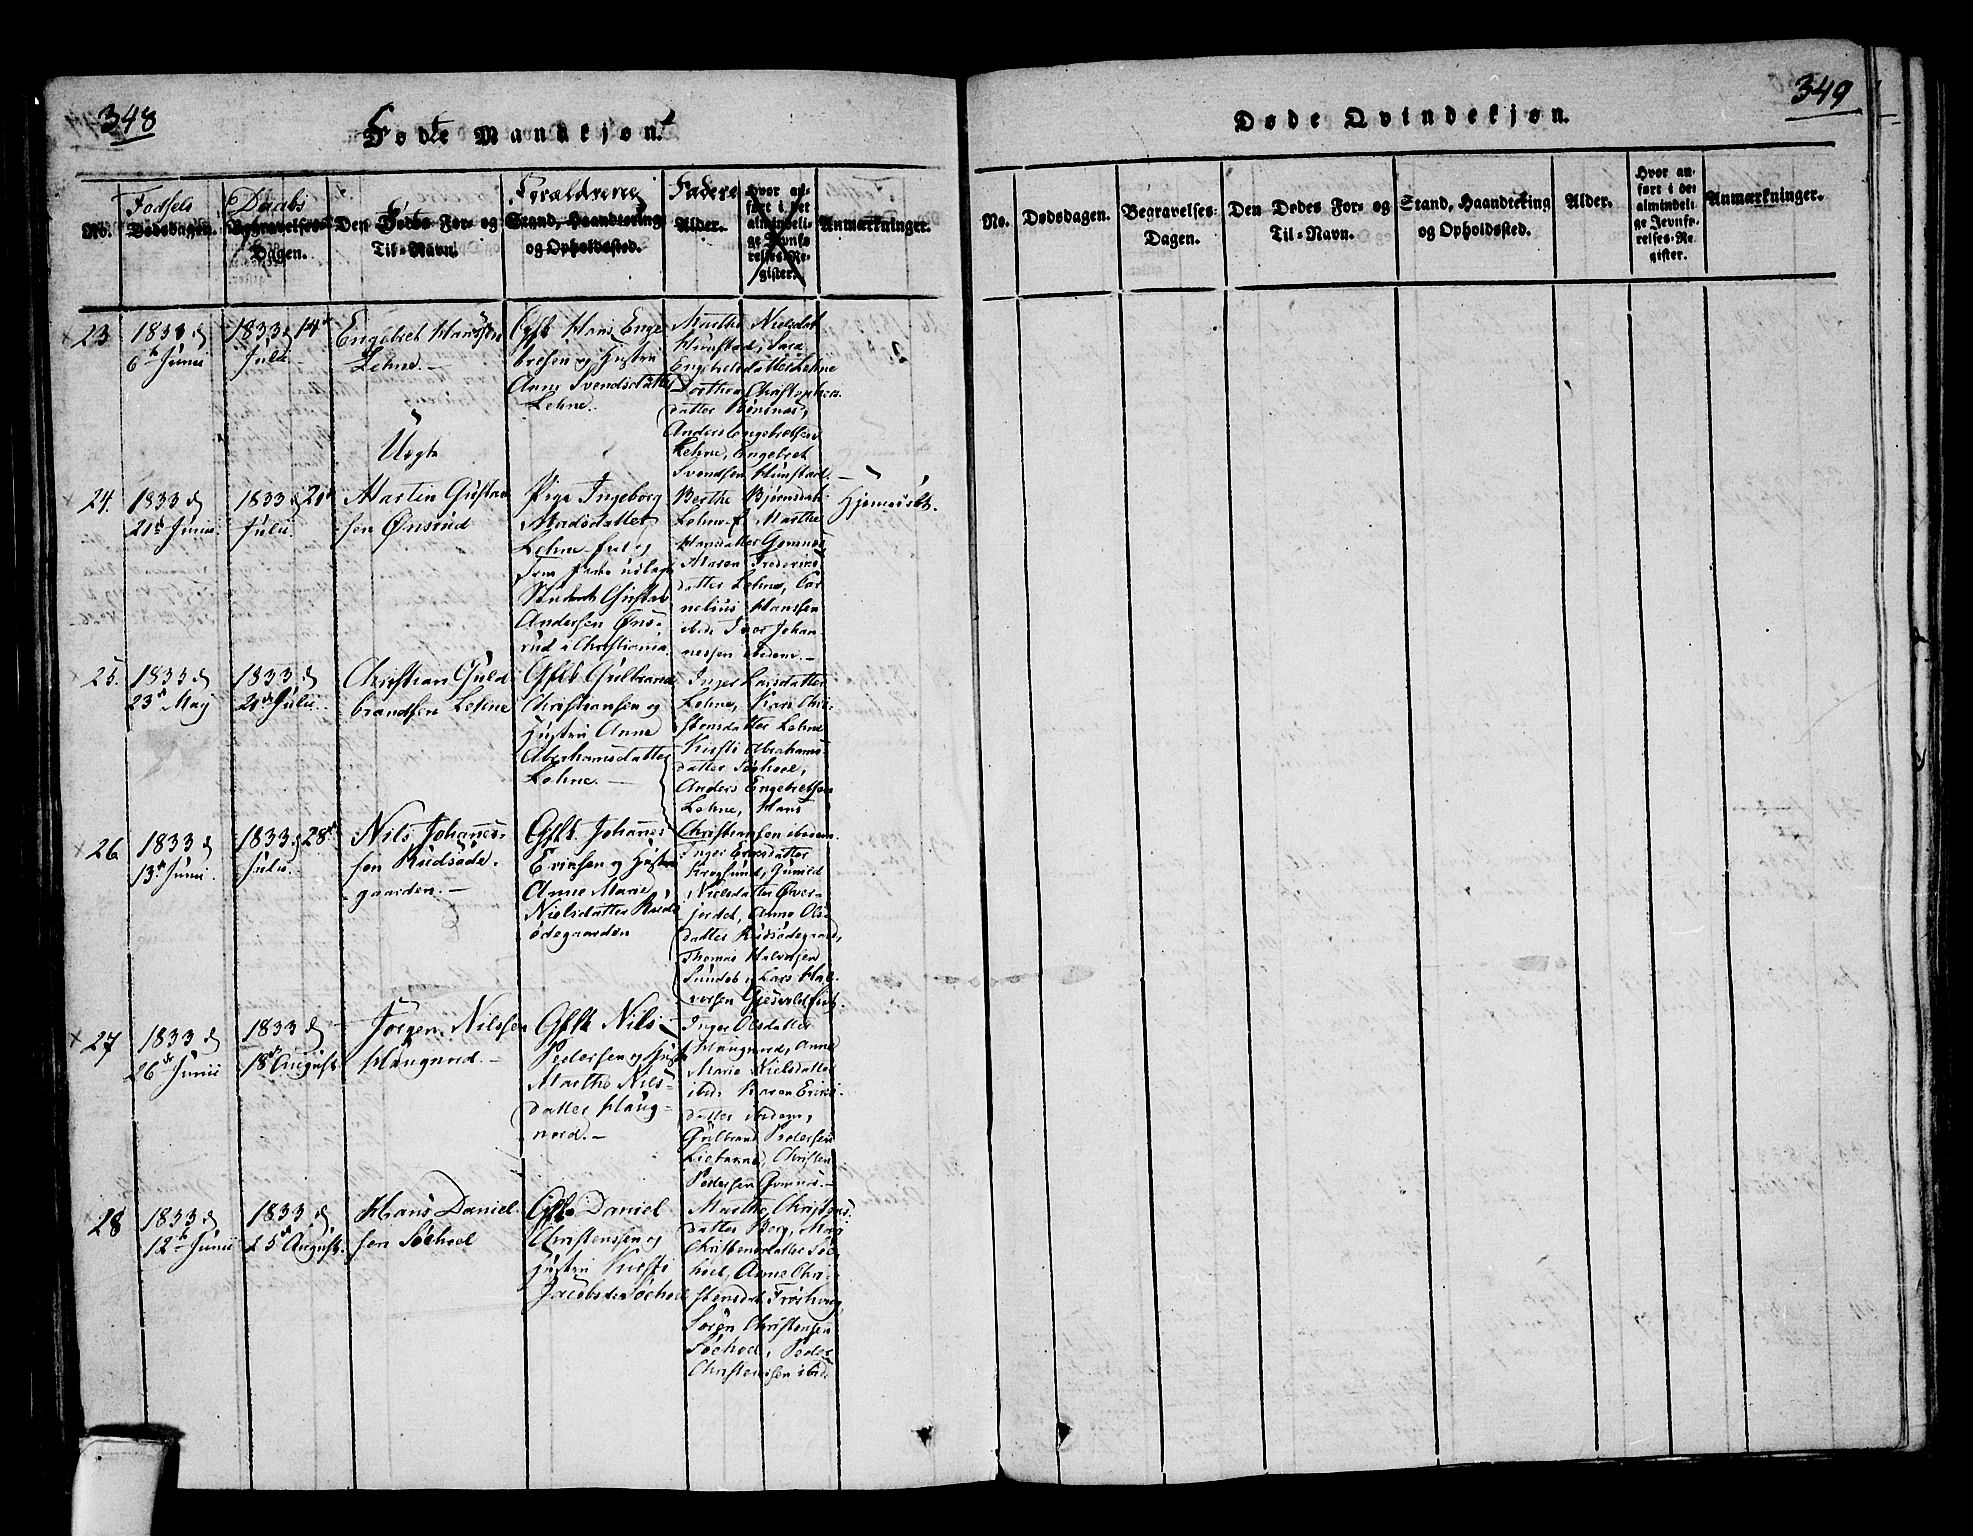 348
Fødte Mandkjøn.
No.
Fødsels
Dødsdagen.
Daabs
Begravelses-
Dagen.
Den Dødes For- og
Til-Navn.
Forældrenes
Stand, Haandtering
og Opholdssted.
Fadere
Alder.
Hvor an-
ført i det
almindeli-
ge Jevnfø-
relses-Re-
gister.
Anmærkninger.
23
1833 d
6te Junii
1833 d 14de
Julii
Engebret Hanssen
Lehne.
Gft Hans Enge
bresen og Hustru
Anne Svendsdatter
Lehne.
Marthe Nielsdat
Hunstad, Sara
Engebretsdatter Lehne
Dorthea Christophers
datter
Anders Engebretsen
Lehne, Engebret
Svendsen Hunstad.
24.
1833 d
21de Junii
1833 d 21de
Julii
Uegte
Martin Gustav
sen Ønsrud
Pige Ingeborg
Madsdatter
Lehne
Student Gustav
Andersen Øns-
rud i Christiania.
Berthe Bjørnsdat
Lehne Marthe
Hansdatter
Maren Frederiks
datter Lehne, Cor
nelius Hanssen
ibid Iver Johan
nessen ibidem.
Hjemmedøbt.
25.
1833 d
23de May
1833 d
21de Julii
Christian Guld
brandsen Lehne
Gft Gulbrand
Christiansen og
Hustru Anne
Aberhamsdatter
Lehne.
Inger Larsdatter
Lehne, Kari Chri-
stensdatter Lehne
Kirsti Abrahams
datter Søehoel,
Anders Engebretsen
Lehne, Hans
Christiansen ibidem
26
1833 d
13de Junii
1833 d 28de
Julii
Nils Johannes-
sen Rudsøde-
gaarden.
Gft. Johannes
Ericksen og Hustru
Anne Marie
Nielsdatter Ruds
ødegaarden
Inger Ericsdatter
Krogsund, Gunild
Nielsdatter Øver-
jordet, Anne Ols
datter Rudsødegaard,
Thomas Halvorsen
Sundby Lars Hal-
vorsen
27
1833 d
26de Junii
1833 d
18de August
Jørgen Nilssen
Haugnord.
Gft Nils
Pedersen og Hust
Marthe Niels-
datter Haug-
nord.
Inger Olsdatter
Haugnord, Anne
Marie Nielsdatter
ibid. Karen Erics-
datter ibidem,
Gulbrand Pedersen
Christen
Pedersen
28
1833 d
12te Junii
1833 d
25de August.
Hans Daniel
sen Søehoel
Gft Daniel
Christenssen og
Hustru Kirsti
Jacobsdr Søehoel
Marthe Christens
datter Berg, Mari
Christensdatter Søe
hoel, Anne Chri-
stensdat Frøshoug,
Søren Christensen
Søehoel, Peder
Christenssen ibid
349
Døde Qvindekjøn.
No.
Dødsdagen.
Begravelses-
Dagen.
Den Dødes For- og
Til-Navn.
Stand, Haandtering
og Opholdssted.
Alder.
Hvor an-
ført i det
almindeli-
ge Jevnfø-
relses-Re-
gister.
Anmærkninger.